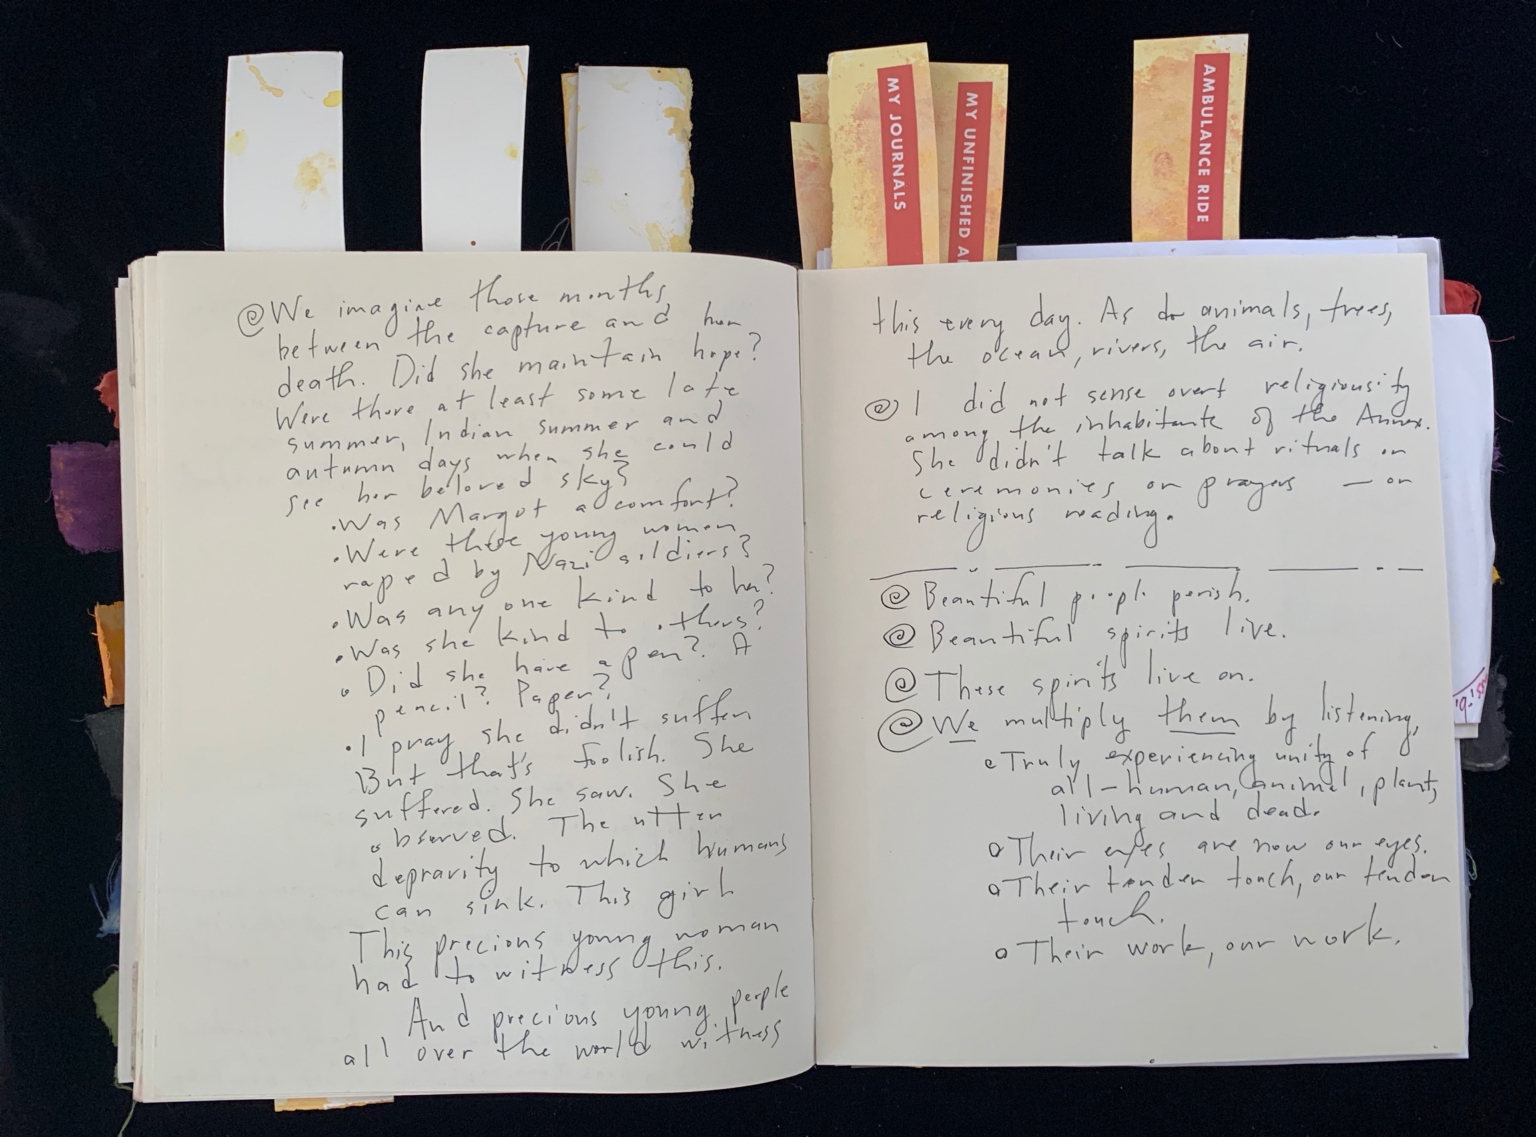 MY JOURNALS
MY UNFINISHED
AMBULANCE RIDE
We imagine those months,
between the capture and her
death. Did she maintain hope?
Were there at least some late
summer, Indian summer and
autumn days when she could
see her beloved sky?
• Was Margot a comfort?
• Were these young women
raped by Nazi soldiers?
• Was any one kind to her?
• Was she kind to others?
• Did she have a pen? A
pencil? Paper?
• I pray she didn't suffer
But that's foolish. She
suffered. She saw. She
observed. The utter
depravity to which humans
can sink. This girl
This precious young woman
had to witness this.
And precious young people
all over the world witness
this every day. As do animals, trees,
the ocean, rivers, the air.
I did not sense overt religiousity
among the inhabitants of the Annex.
She didn't talk about rituals or
ceremonies or prayers — or
religious reading.
Beautiful people perish.
Beautiful spirits live.
These spirits live on.
We multiply them by listening,
Truly experiencing unity of
all - human, animal, plant,
living and dead.
Their eyes are now our eyes.
Their tender touch, our tender
touch.
Their work, our work.